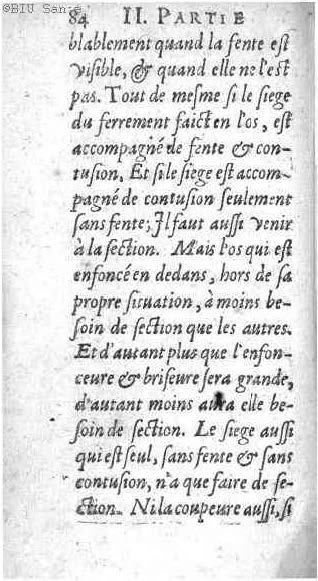 ©BIU Santé
84 II. PARTIE
blablement quand la fente est
visible, & quand elle ne l'est
pas. Tout de mesme si le siege
du ferrement faict en l'os, est
accompagné de fente & con-
tusion. Et si le siege est accom-
pagné de contusion seulement
sans fente; Il faut aussi venir
à la section. Mais l'os qui est
enfoncé en dedans, hors de sa
propre situation, à moins be-
soin de section que les autres.
Et d'autant plus que l'enfon-
ceure & briseure sera grande,
d'autant moins aura elle be-
soin de section. Le siege aussi
qui est seul, sans fente & sans
contusion, n'a que faire de se-
ction. Ni la coupeure aussi, si